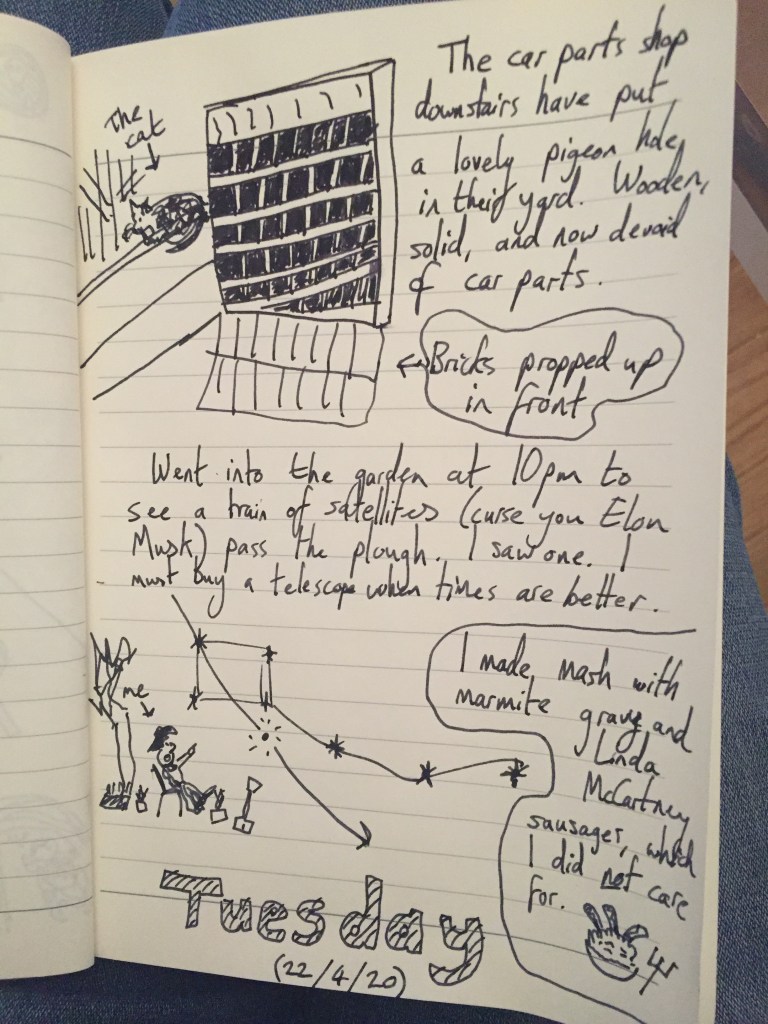 The car parts shop
downstairs have put
a lovely pigeon hole
in their yard. Wooden,
solid, and now devoid
of car parts.
The
cat
Bricks propped up
in front
Went into the garden at 10pm to
see a train of satellites (curse you Elon
Musk) pass the plough. I saw one. I
must buy a telescope when times are better.
me
I made mash with
marmite gravy and
Linda
McCartney
sausages, which
I did not care
for.
Tuesday
(22/4/20)